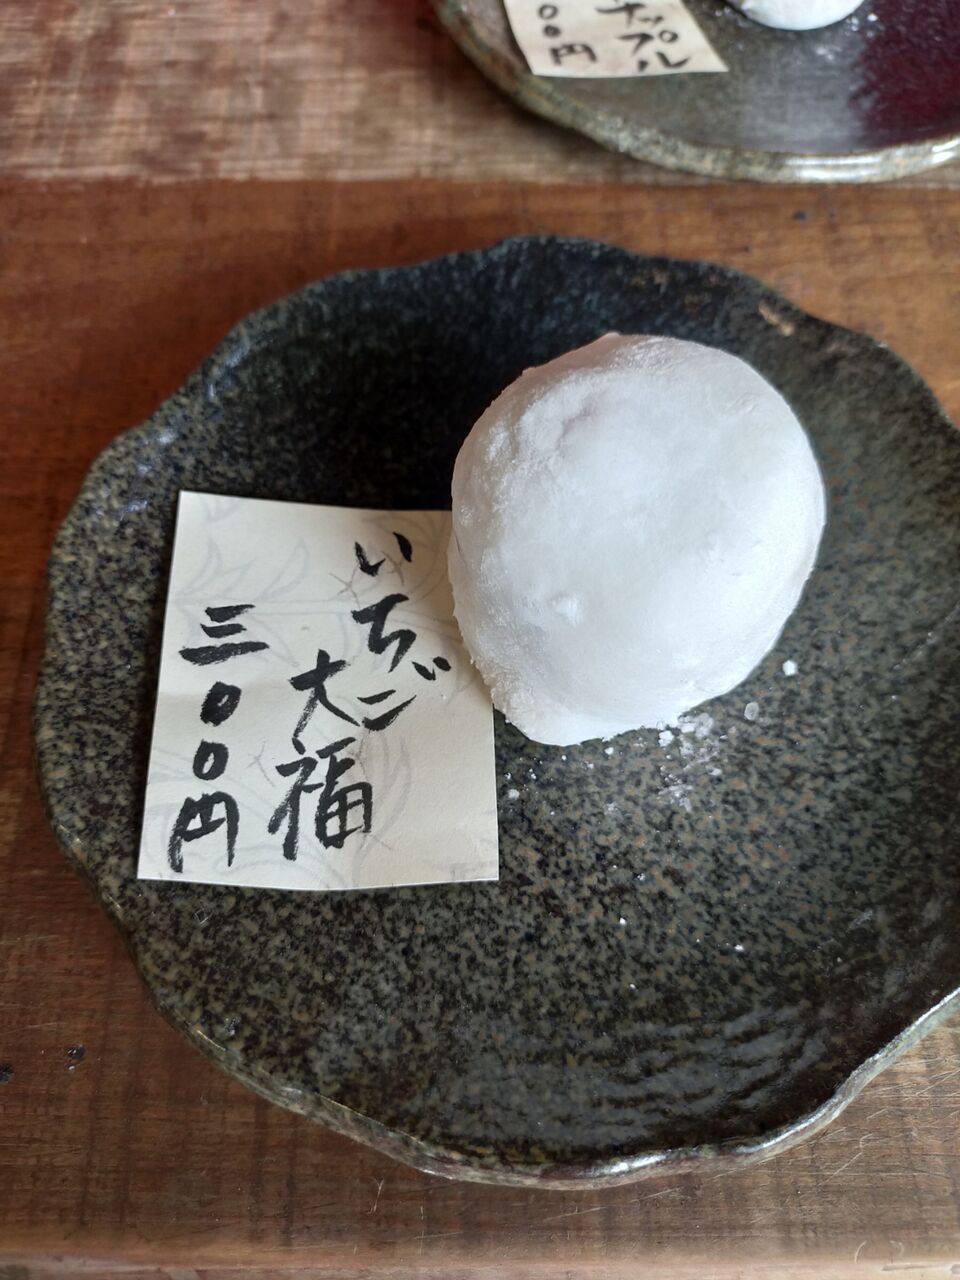 いちご
大福
三〇〇円
ナップル
〇〇円